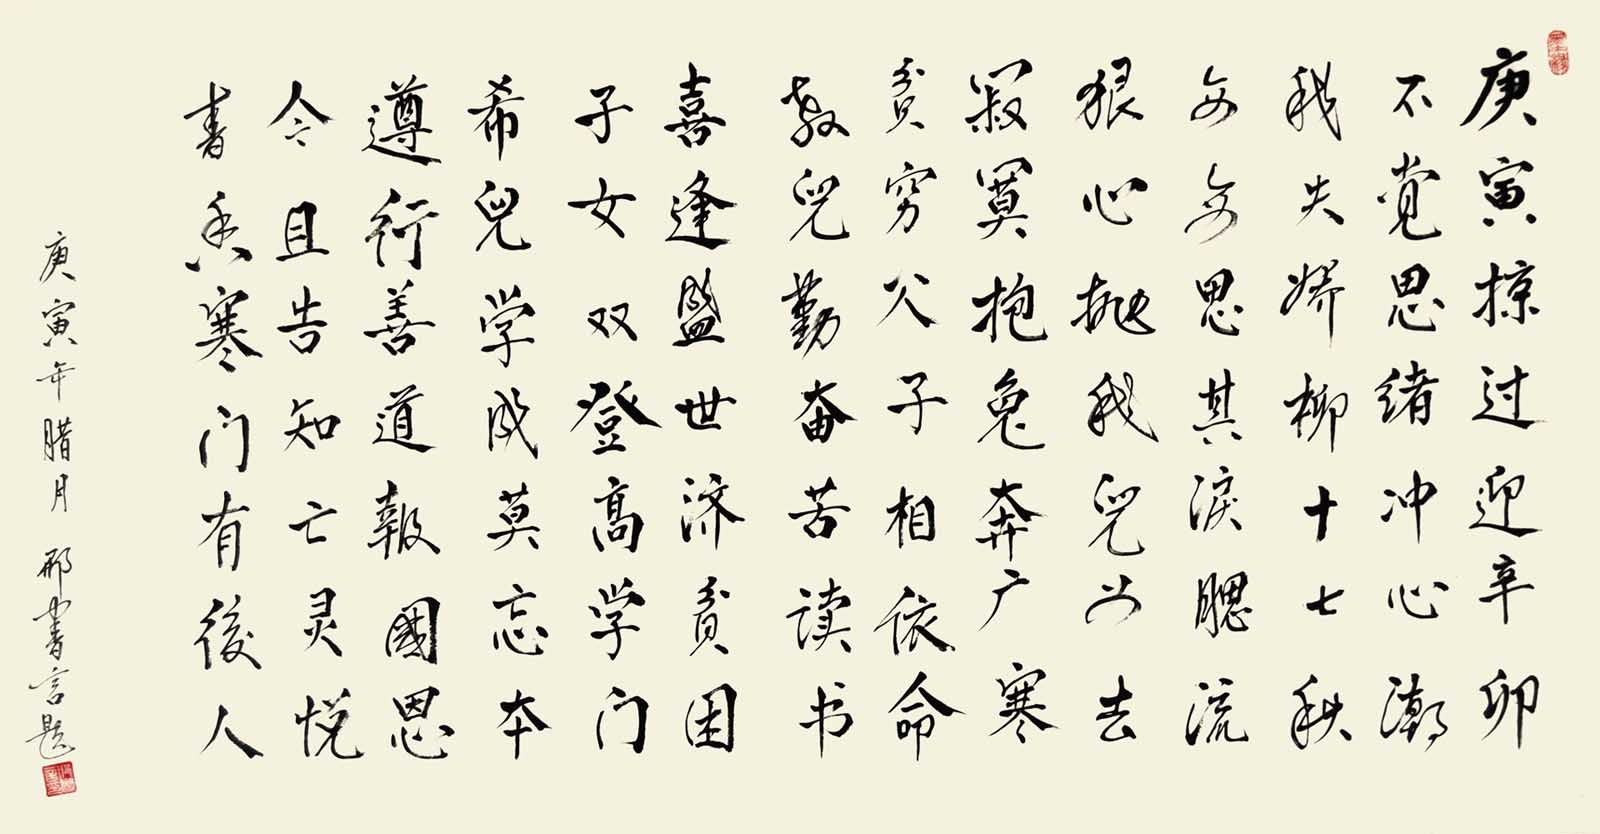 庚寅掠过迎辛卯
不觉思绪冲心潮
我失娇柳十七秋
每每思其淚腮流
狠心抛我兒女去
寂寞抱兔奔广寒
貧穷父子相依命
教兒勤奋苦读书
喜逢盛世济貧困
子女双登高学门
希兒学成莫忘本
遵行善道報國恩
今且告知亡灵悦
書香寒门有後人
庚寅年腊月 邢書言题